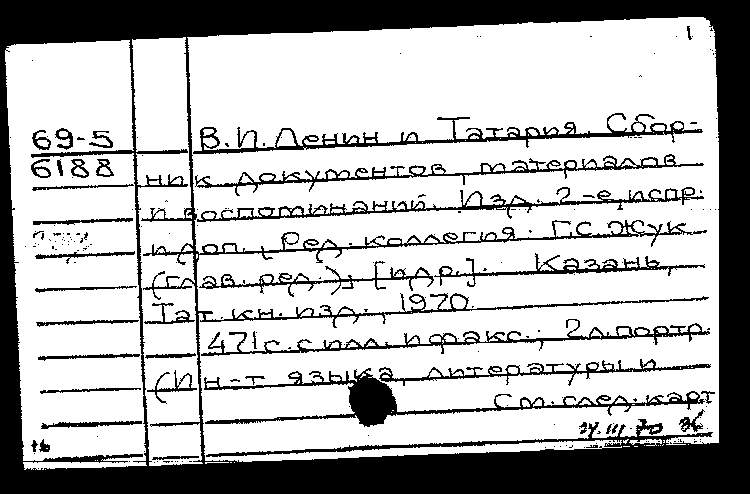 1
69-5 В.И.Ленин и Татария. Сбор-
6188 ник документов, материалов
и воспоминаний. Изд. 2-е, испр.
и доп., Ред. коллегия: Г.С. Жук
(глав. ред.), [и др.]. Казань,
Тат. кн. изд., 1970.
471с. с илл. и факс.; 2л. портр.
(Ин-т языка, литературы и
См. след. карт
24.III 70